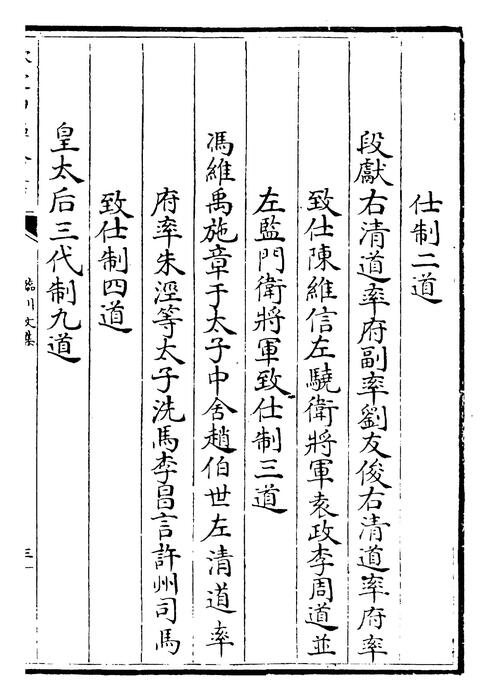 仕制二道
段獻右清道率府副率劉友俊右清道率府率
致仕陳維信左驍衛將軍袁政李周道並
左監門衛將軍致仕制三道
馮維禹施章于太子中舍趙伯世左清道率
府率朱涇等太子洗馬李昌言許州司馬
致仕制四道
皇太后三代制九道
臨川文集
三